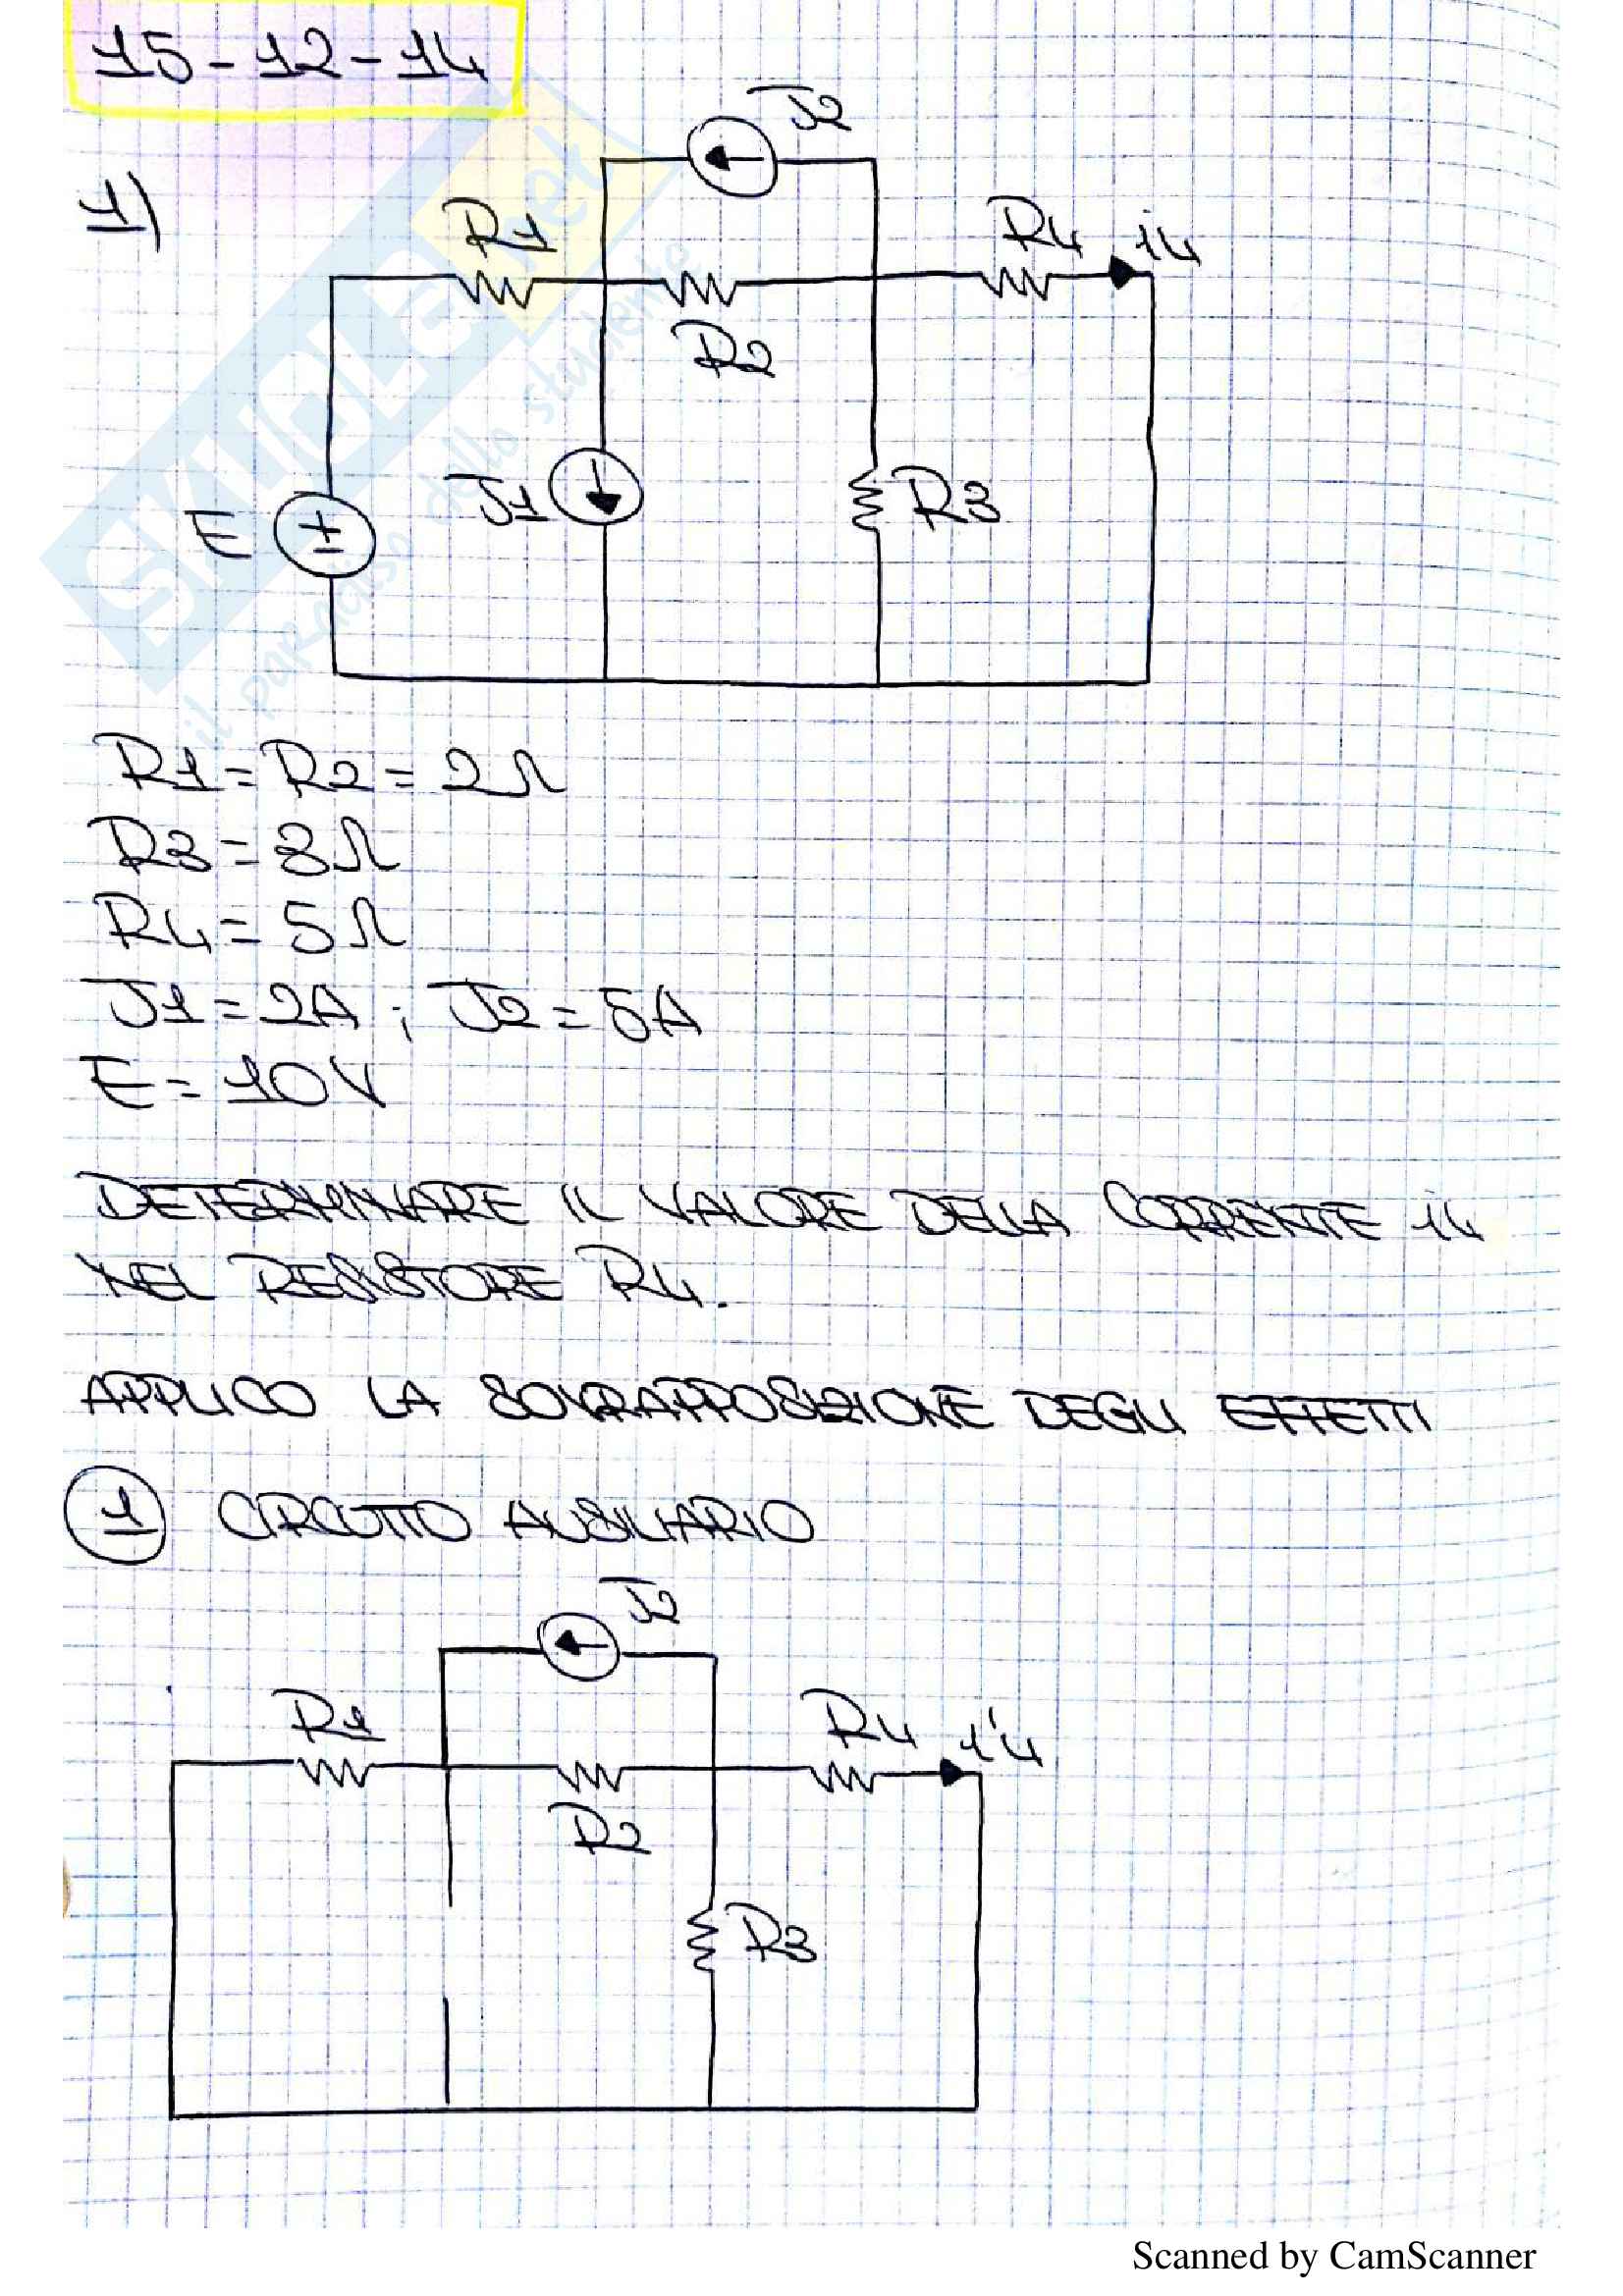 15-12-14
J2
1)
R1
R4 i4
R2
E
J1
R3
R1 = R2 = 2Ω
R3 = 3Ω
R4 = 5Ω
J1 = 2A ; J2 = 5A
E = 10V
DETERMINARE IL VALORE DELLA CORRENTE i4
NEL RESISTORE R4.
APPLICO LA SOVRAPPOSIZIONE DEGLI EFFETTI
1 CIRCUITO AUSILIARIO
J2
R1
R4 i'4
R2
R3
SKUOLA.net
il paradiso dello studente
Scanned by CamScanner